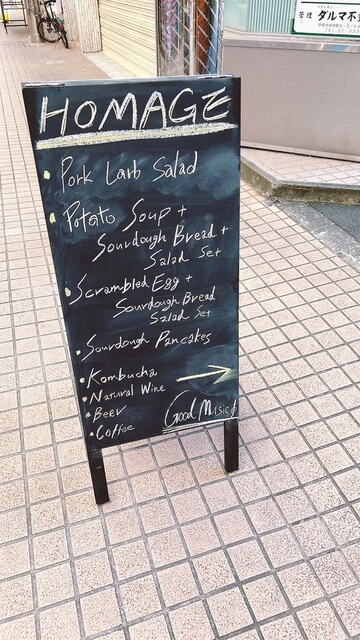 HOMAGE
• Pork Larb Salad
• Potato Soup +
Sourdough Bread +
Salad Set
• Scrambled Egg +
Sourdough Bread
Salad Set
• Sourdough Pancakes
• Kombucha
• Natural Wine →
• Beer
• Coffee
Good Music♪
管理 ダルマ不